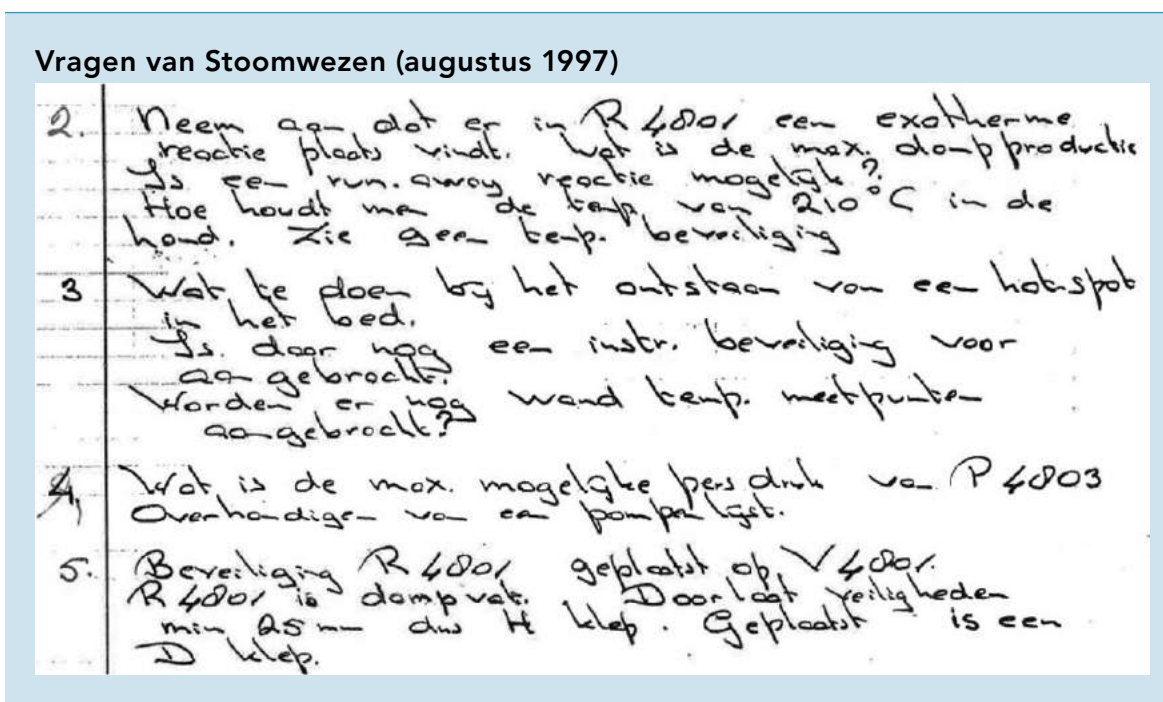 Vragen van Stoomwezen (augustus 1997)
2. Neem aan dat er in R 4801 een exotherme
reactie plaats vindt. Wat is de max. dampproductie
Is een run.away reactie mogelijk?
Hoe houdt men de temp. van 210°C in de
hand. Zie geen temp. beveiliging
3 Wat te doen bij het ontstaan van een hot-spot
in het bed.
Is daar nog een instr. beveiliging voor
aangebracht.
Worden er nog wand temp. meetpunten
aangebracht?
4, Wat is de max. mogelijke persdruk van P 4803
Overhandigen van een pompenlijst.
5. Beveiliging R 4801 geplaatst op V 4801.
R 4801 is dampvat. Doorlaat veiligheden
min 25 mm dus H klep. Geplaatst is een
D klep.